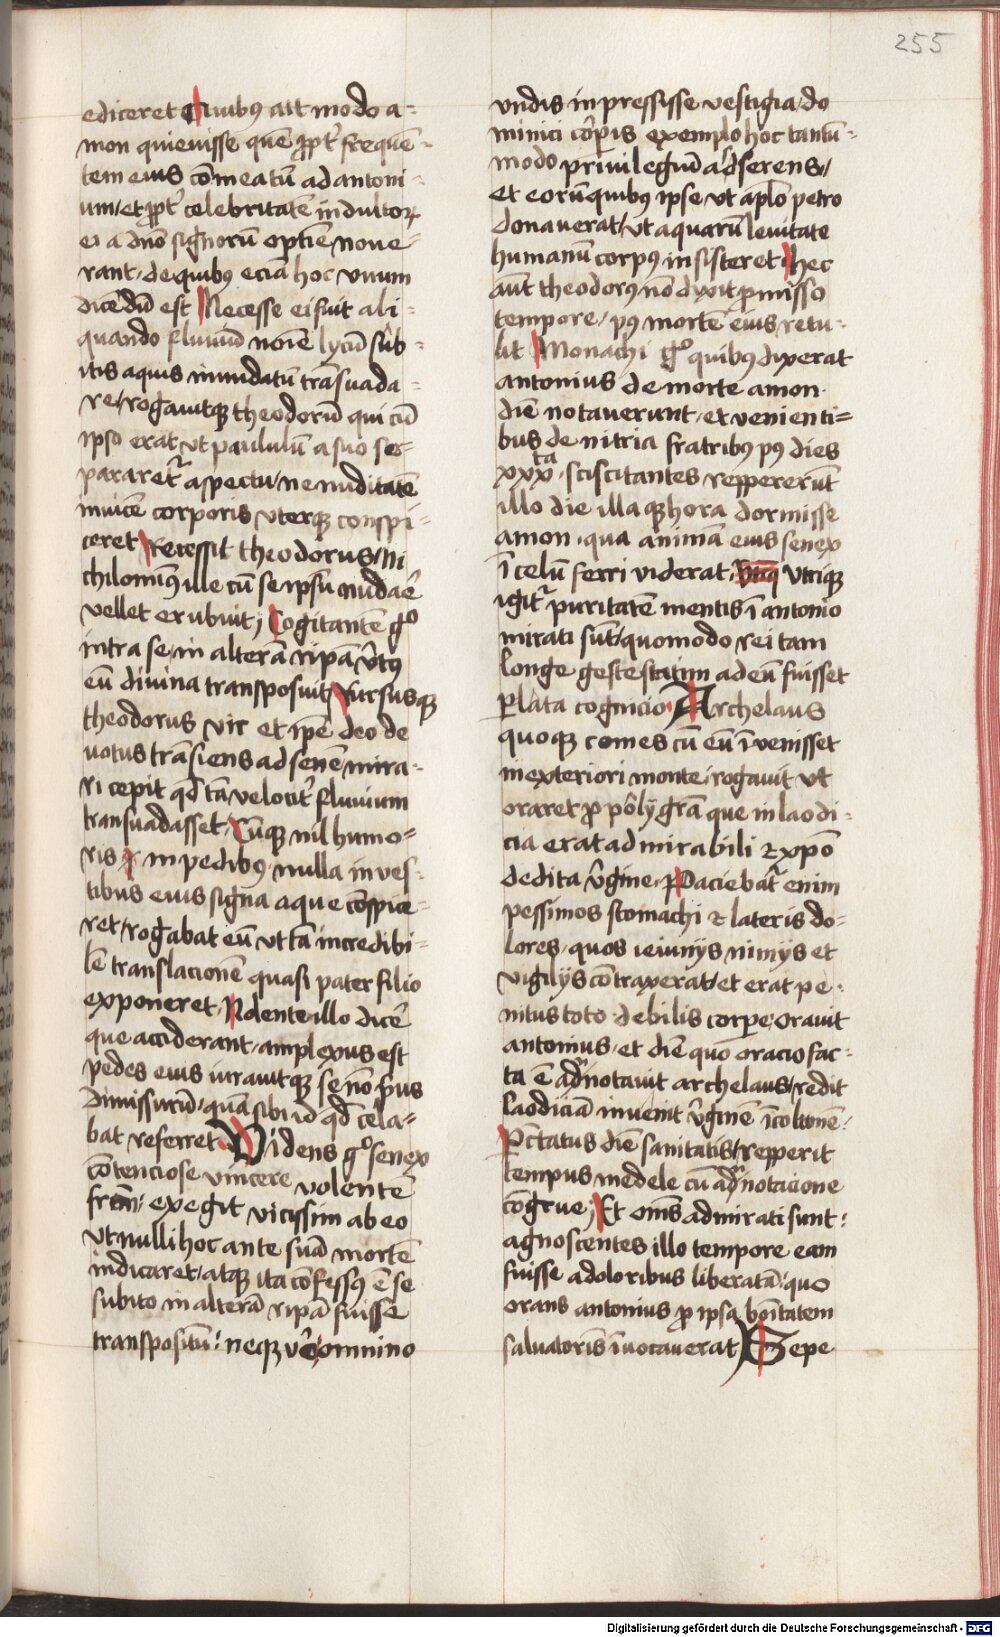 255
ediceret Quibꝰ ait modo a-
mon quieuisse quē ꝓpt̄ frequē-
tem eius cōmeatū ad antoni-
um / et ꝓpt̄ celebritatē indultoꝝ
ei a dnō signorū optīe noue-
rant / de quibꝰ eciā hoc vnum
dicēdū est Necesse ei fuit ali-
quando fluuiū noīe lycū sub-
itis aquis inundatū trāsuada-
re / rogauitqꝫ theodorū qui cū
ipso erat vt paululū a suo se-
pararet̄ aspectu / ne nuditatē
inuicē corporis vterqꝫ conspi-
ceret Recessit theodorus / ni
chilominꝰ ille cū se ipsū nudāe
vellet erubuit ; Cogitantē gͦ
intra se / in alterā ripā v̄tꝰ
eū diuina transposuit Rursusqꝫ
theodorus vir et ip̄e deo de
uotus trāsiens ad senē mira-
ri cepit qđ tā velocit̄ fluuium
transuadasset / Cūqꝫ nil humo-
ris in pedibꝰ nulla in ves-
tibus eius signa aque cōspice-
ret / rogabat eū vt tā incredibi-
lē translacionē quasi pater filio
exponeret / Nolente illo dicē
que acciderant / amplexus est
pedes eius iurauitqꝫ se nō p̄us
dimissurū / quā sibi id qđ cela-
bat referret Videns gͦ senex
cōtenciose vincere volentē
fr̄em / exegit vicissim ab eo
vt nulli hoc ante suā mortē
indicaret / atqꝫ ita cōfessꝰ ē se
subito in alterā ripā fuisse
transpositū / neqꝫ v̄o omnino
vndis inpressisse vestigia / do
minici corꝑis exemplo hoc tantū-
modo priuilegiū adserens /
et eorū quibꝰ ipse vt aplō petro
donauerat / vt aquarū leuitate
humanū corpꝰ insisteret Hec
aūt theodorꝰ nō dixit ꝓmisso
tempore / pꝰ mortē eius retu-
lit Monachi gͦ quibꝰ dixerat
antonius de morte amon
diē notauerunt / et venienti=
bus de nitria fratribꝰ pꝰ dies
xxxta sciscitantes reppererūt
illo die illaqꝫ hora dormisse
amon / qua animā eius senex
ī celū ferri viderat / vtriqꝫ
igit̄ puritatē mentis ī antonio
mirati sūt / quomodo rei tam
longe geste statim ad eū fuisset
ꝑlata cognicio Archelaus
quoqꝫ comes cū eū īvenisset
in exteriori monte / rogauit vt
oraret ꝓ polygrā que in laodi-
cia erat admirabili et xpō
dedita v̄gine / Paciebat̄ enim
pessimos stomachi et lateris do-
lores / quos ieiunijs nimijs et
vigilijs cōtraxerat / et erat pe-
nitus toto debilis corpe / Orauit
antonius / et diē quo oracio fac-
ta ē adnotauit archelaus / redit
laodiciā inuenit v̄ginē īcolūnē /
Pc̄tatus diē sanitatis / repperit
tempus medele cū adnotacione
cōgrue ; Et om̄s admirati sunt :
agnoscentes illo tempore eam
fuisse a doloribus liberatā / quo
orans antonius ꝓ ipsa bōitatem
saluatoris īuocauerat Sepe
Digitalisierung gefördert durch die Deutsche Forschungsgemeinschaft - DFG